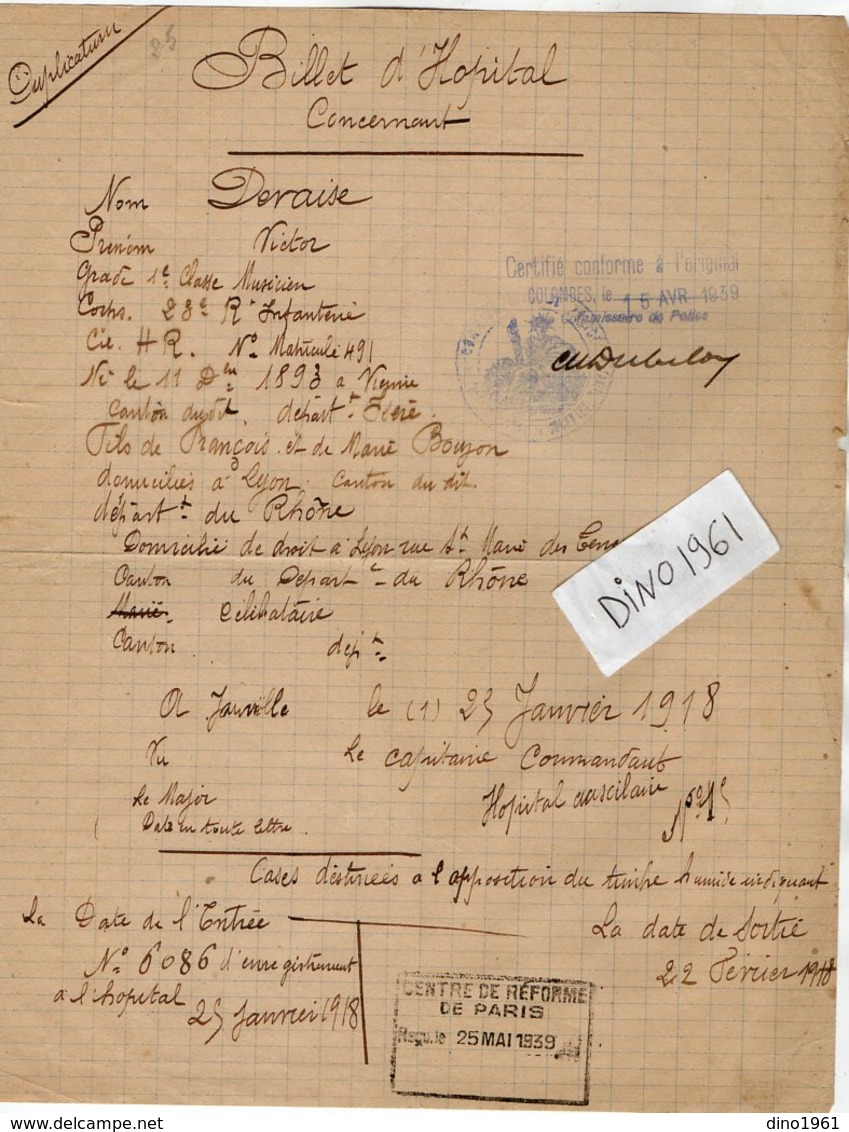 Duplicatum
25
Billet d'Hopital
Concernant
Nom Devaise
Prénom Victor
Grade 1e Classe Musicien
Corps. 23e R Infanterie
Certifié conforme à l'original
COLOMBES, le 15 AVR 1939
Commissaire de Police
Cie. HR. No Matricule 491
Né le 11 Dem 1893 a Vienne
Canton du dit. départt Isère.
Fils de François et de Marie Boujon
domiciliés à Lyon. Canton du dit.
départt du Rhône
Domicilié de droit à Lyon rue St Marie des
Canton du Départt du Rhône
Marié. Célibataire
Canton dept
DiNO1961
A Janville le (1) 25 Janvier 1918
Vu Le Capitaine Commandant
Le Major Hopital auxcilaire No
Date en toute lettre.
Cases destinées a l'apposition du timbre humide indiquant
La Date de l'Entrée La date de Sortie
No 6086 d'enregistrement 22 Février 1918
a l'hopital
25 Janvier 1918
CENTRE DE RÉFORME
DE PARIS
Reçu le 25 MAI 1939
dino1961